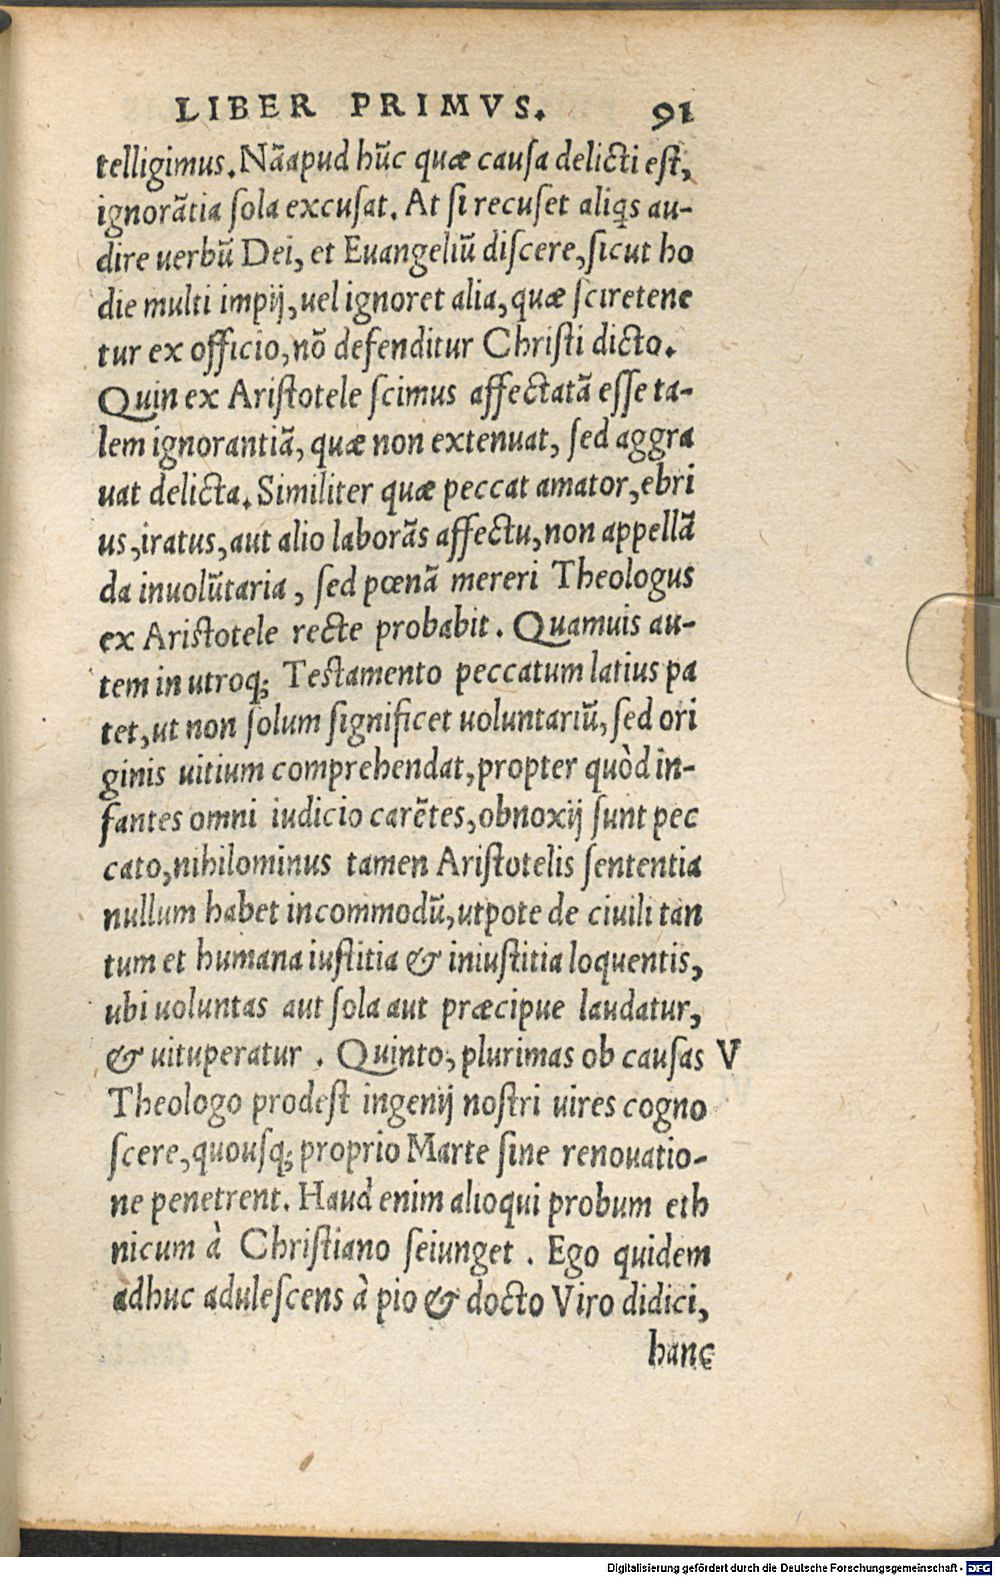 LIBER PRIMVS. 91
telligimus. Nãapud hũc quæ causa delicti est,
ignorãtia sola excusat. At si recuset aliqs au-
dire uerbũ Dei, et Euangeliũ discere, sicut ho
die multi impij, uel ignoret alia, quæ sciretene
tur ex officio, nõ defenditur Christi dicto.
Quin ex Aristotele scimus affectatã esse ta-
lem ignorantiã, quæ non extenuat, sed aggra
uat delicta. Similiter quæ peccat amator, ebri
us, iratus, aut alio laborãs affectu, non appellã
da inuolũtaria, sed pœnã mereri Theologus
ex Aristotele recte probabit. Quamuis au-
tem in utroq; Testamento peccatum latius pa
tet, ut non solum significet uoluntariũ, sed ori
ginis uitium comprehendat, propter quòd in-
fantes omni iudicio carẽtes, obnoxij sunt pec
cato, nihilominus tamen Aristotelis sententia
nullum habet incommodũ, utpote de ciuili tan
tum et humana iustitia & iniustitia loquentis,
ubi uoluntas aut sola aut præcipue laudatur,
& uituperatur. Quinto, plurimas ob causas V
Theologo prodest ingenij nostri uires cogno
scere, quousq; proprio Marte sine renouatio-
ne penetrent. Haud enim alioqui probum eth
nicum à Christiano seiunget. Ego quidem
adhuc adulescens à pio & docto Viro didici,
hanc
Digitalisierung gefördert durch die Deutsche Forschungsgemeinschaft - DFG